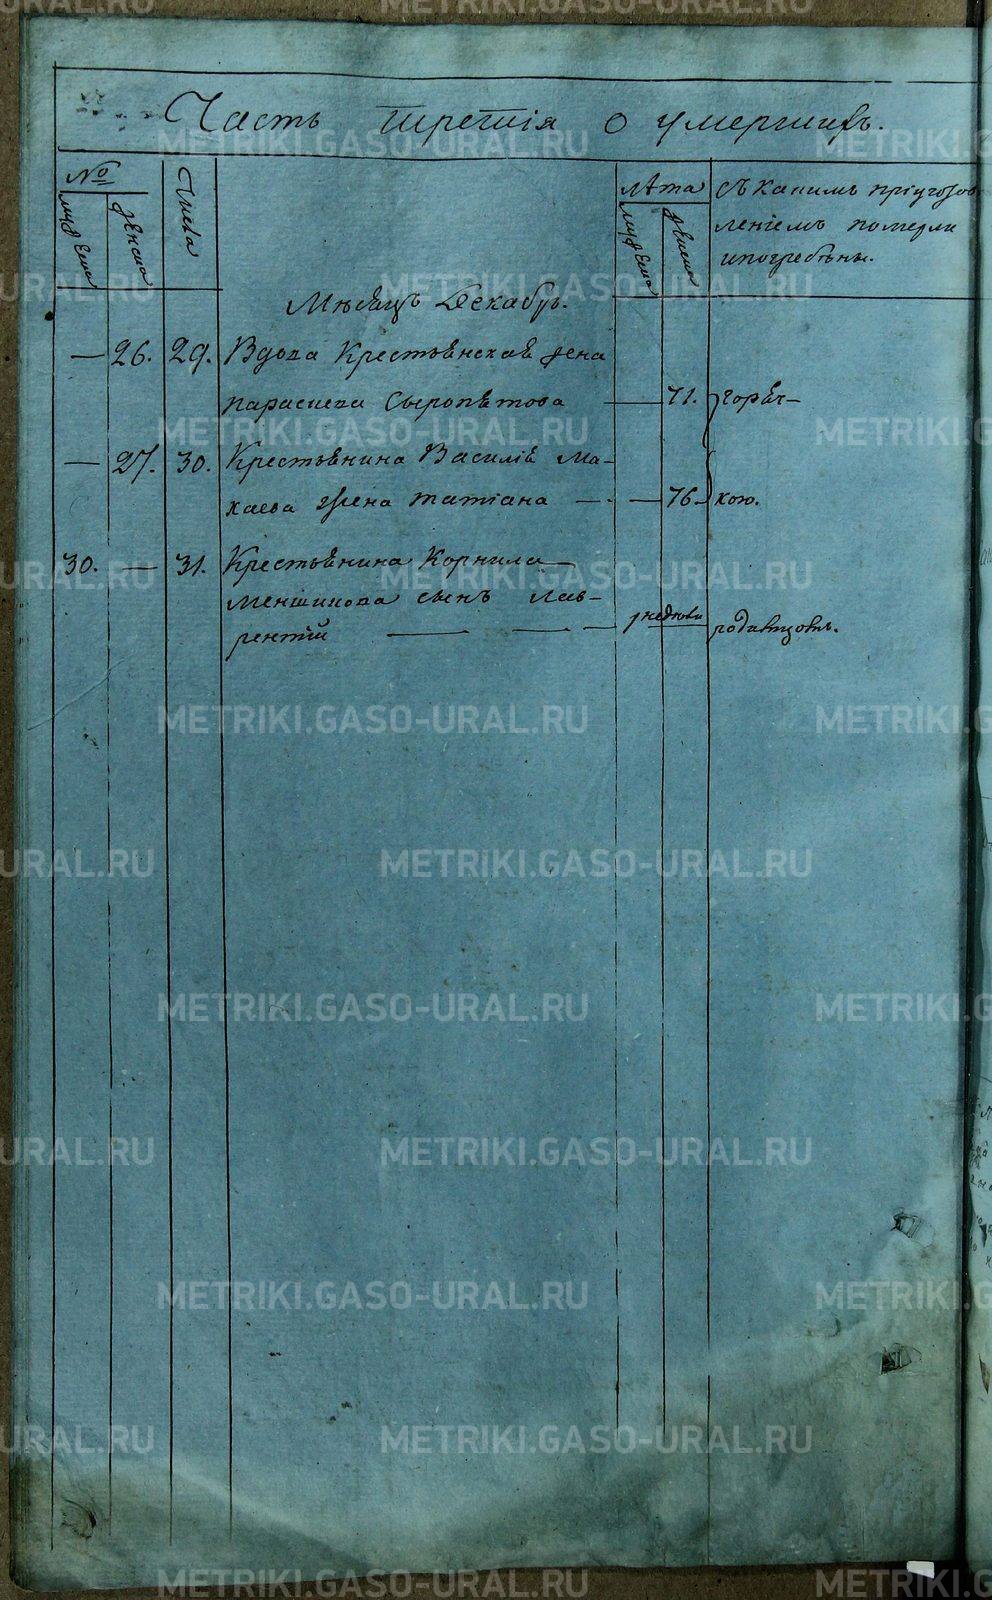 Часть третія о умершихъ.
№
мужеска
женска
Числа
лѣта
мужеска
женска
съ какимъ пріугозов
леніемъ померли
и погребены.
Мѣсяцъ Декабрь.
— 26. 29. Вдова Крестьянская жена
Параскева Сыропятова — 71. горяч-
— 27. 30. Крестьянина Василія Ма-
каева жена Татіана — — 76. кою.
30. — 31. Крестьянина Корнила
Меншикова сынъ Лав-
рентій — — — недели родимцовъ.
METRIKI.GASO-URAL.RU